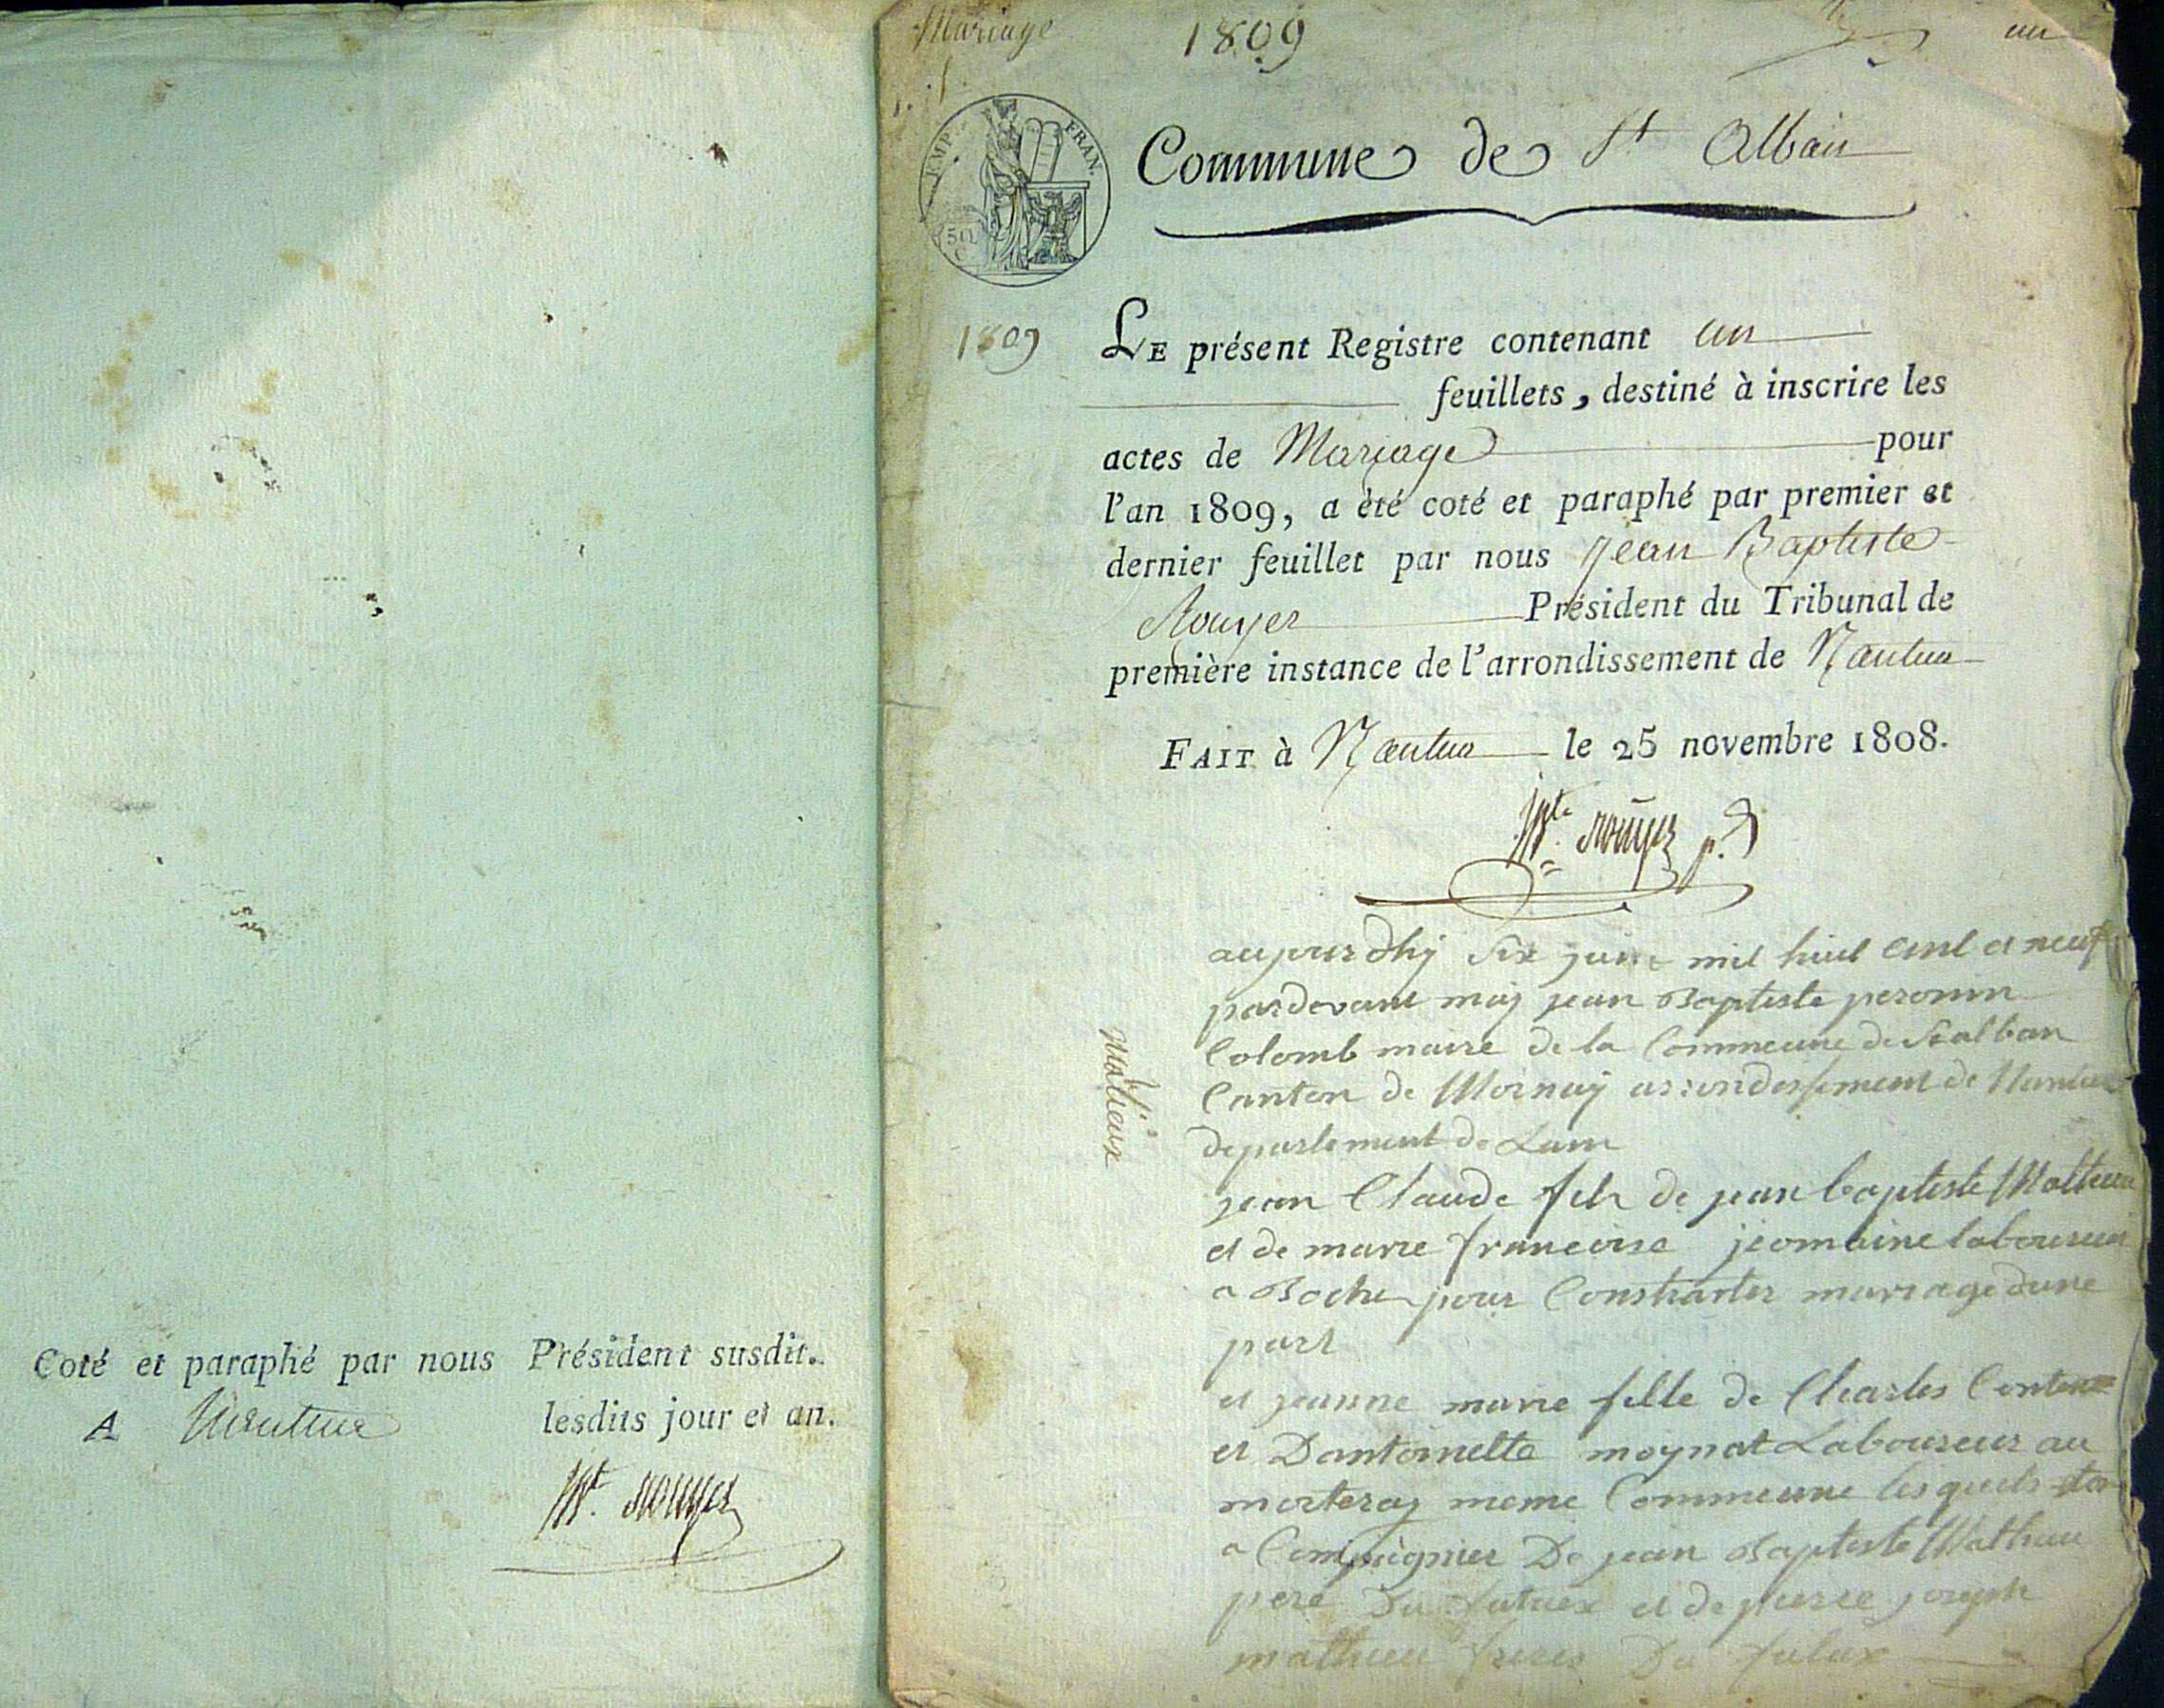 Coté et paraphé par nous Président susdit.
A Nantua lesdits jour et an.
Jn Bte Rouyer
Mariage 1809 un
EMP. FRAN.
50 C
Commune de St Alban
1809
LE présent Registre contenant un
feuillets, destiné à inscrire les
actes de Mariage pour
l'an 1809, a été coté et paraphé par premier et
dernier feuillet par nous Jean Baptiste
Rouyer Président du Tribunal de
première instance de l'arrondissement de Nantua
FAIT à Nantua le 25 novembre 1808.
Jn Bte Rouyer p.d
mathieux
aujourdhÿ six juin mil huit cent et neuf
pardevant moÿ jean Baptiste peronin
Colomb maire de la Commeune de Stalban
Canton de Mornaÿ arrondissement de Nantua
departement de Lain
jean Claude fils de jean baptiste Mathieu
et de marie francoise laboureur
a Boche pour Constracter mariage dune
part
et jeanne marie fille de Charles
et Dantoinette moynat Laboureur au
morteraÿ meme Commeune lesquels
a Compagnier De jean Baptiste Mathieu
pere Du futaex et de pierre joseph
mathieu freres Du futux